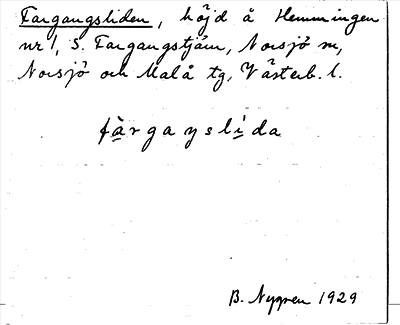 Fargangsliden, höjd å Hemmingen
nr 1, S. Fargangstjärn, Norsjö sn,
Norsjö och Malå tg, Västerb. l.
fàrgaŋslìda
B. Nygren 1929